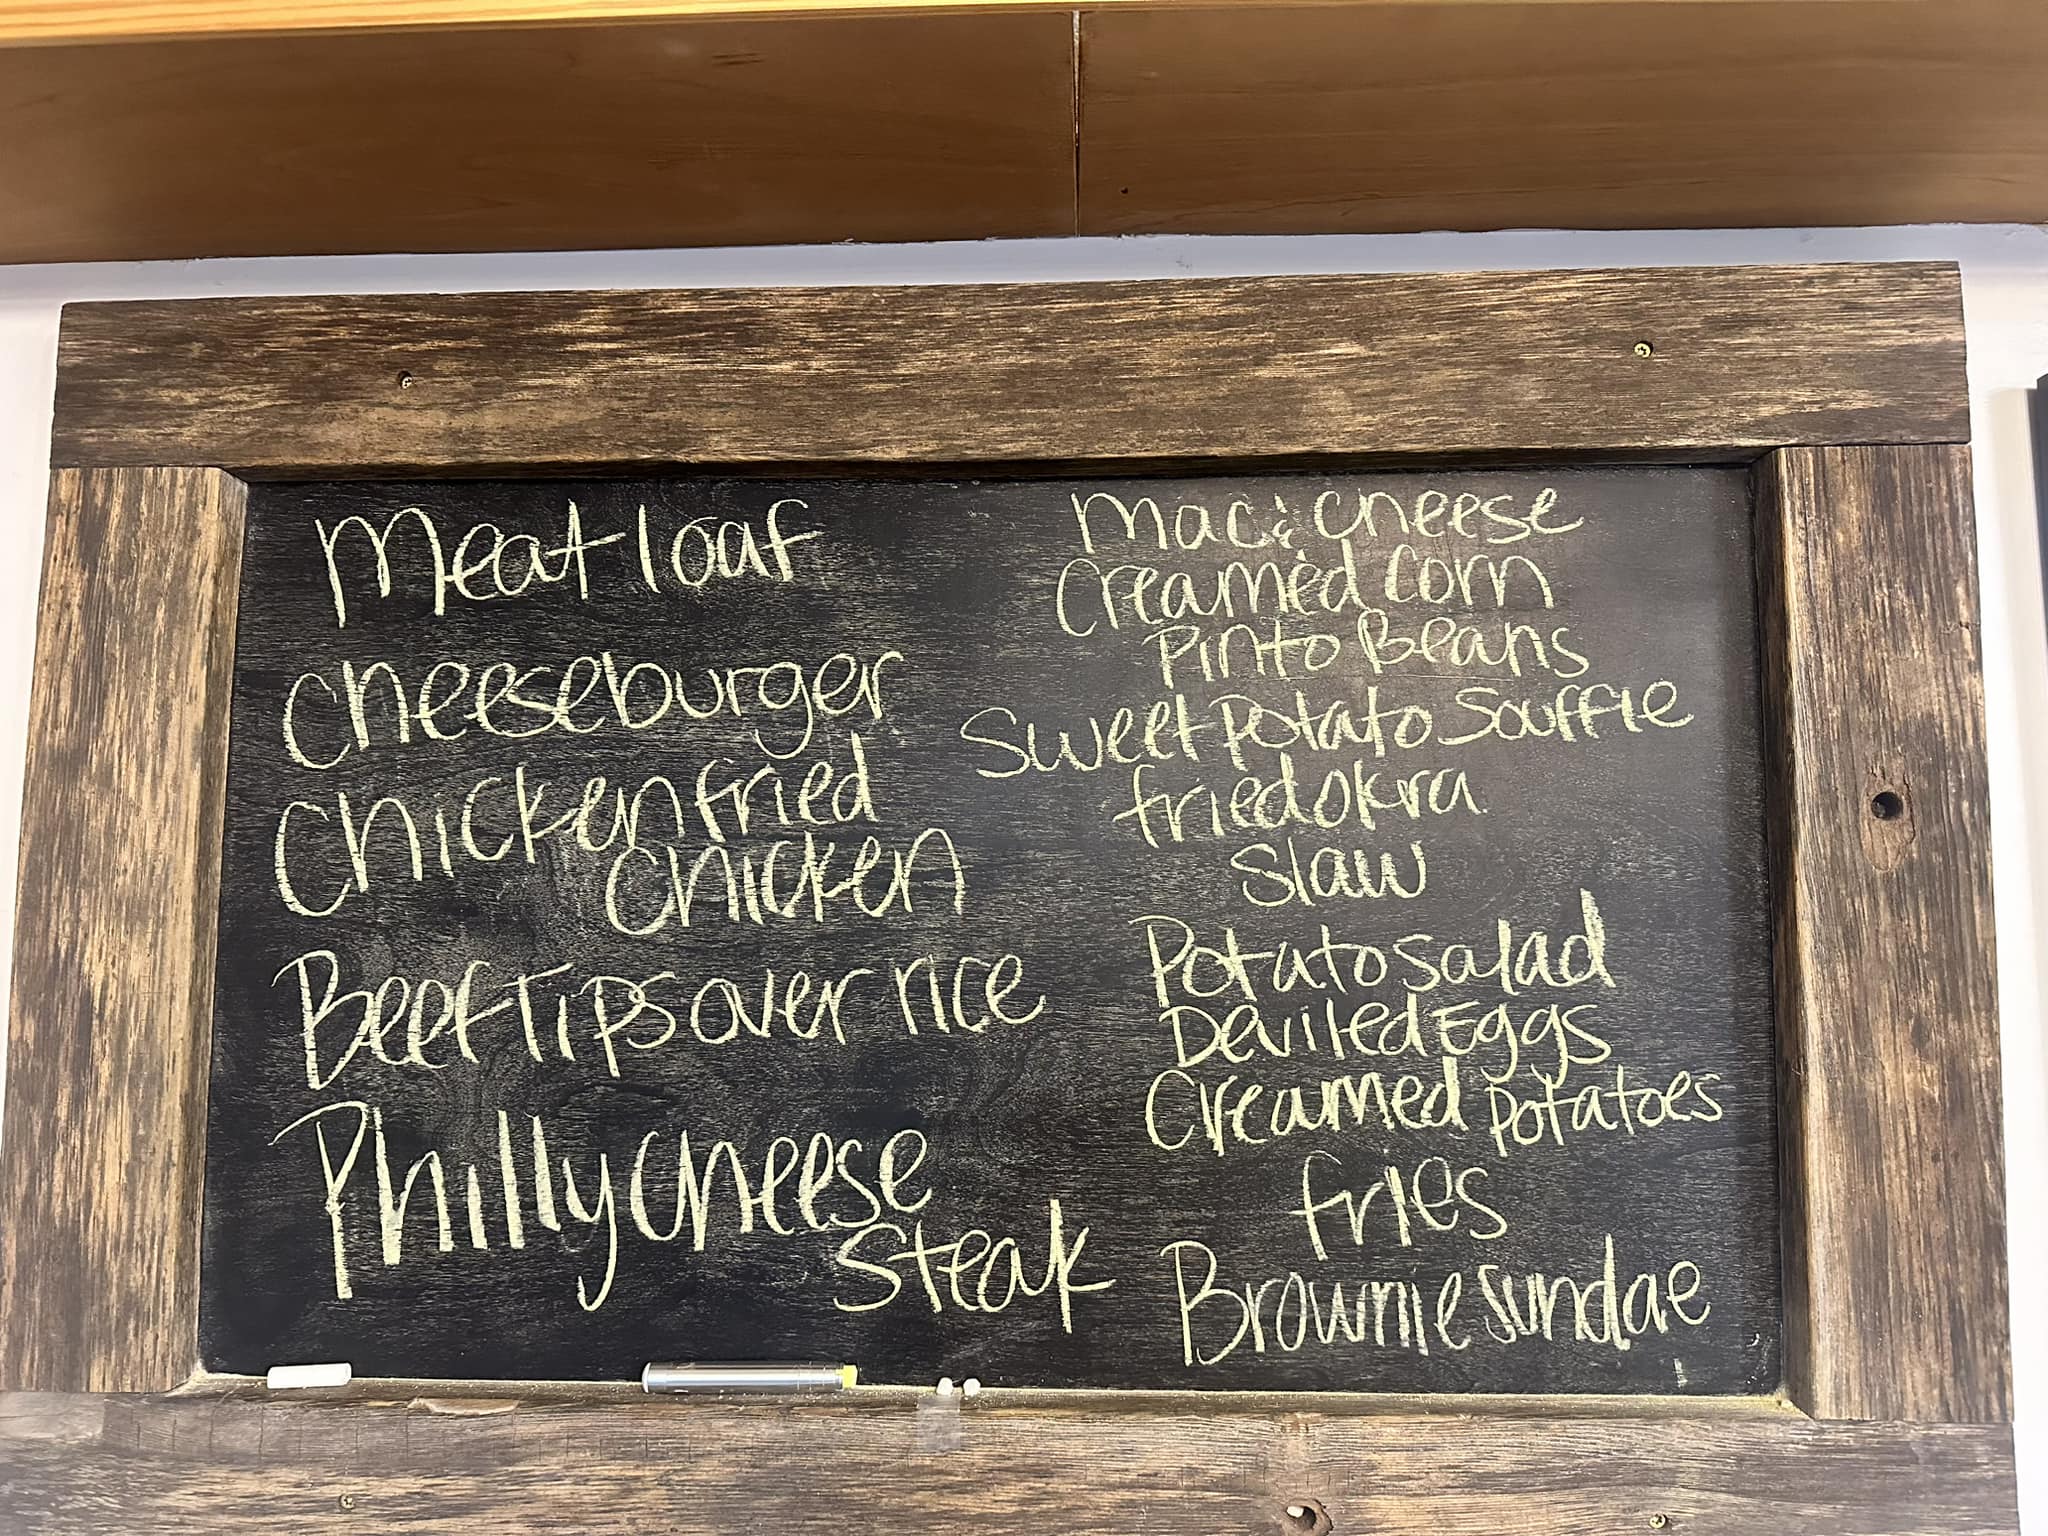 Meatloaf
Cheeseburger
Chicken fried
Chicken
Beef Tips over rice
Philly Cheese
Steak
Mac & Cheese
Creamed Corn
Pinto Beans
Sweet Potato Souffle
fried okra
Slaw
Potato Salad
Deviled Eggs
Creamed Potatoes
fries
Brownie Sundae